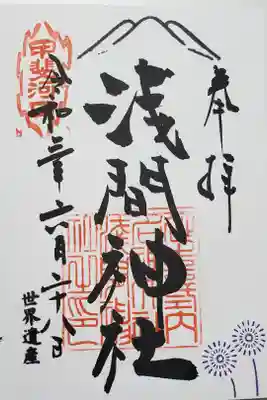 奉拝
浅間神社
令和三年六月二十八日
世界遺産